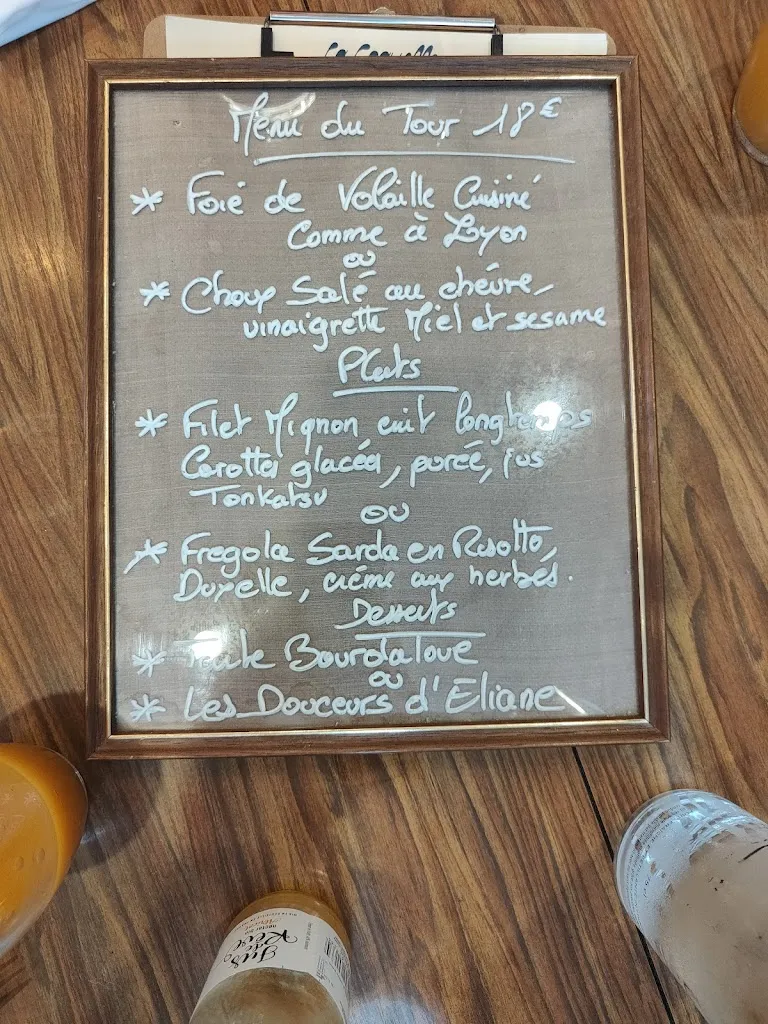 Menu du Jour 18€
* Foie de Volaille Cuisiné
Comme à Lyon
ou
* Choux Salé au chèvre,
vinaigrette Miel et sesame
Plats
* Filet Mignon cuit longtemps
Carottes glacées, purée, jus
Tonkatsu
ou
* Fregola Sarda en Risotto,
Duxelle, crème aux herbes.
Desserts
* Tarte Bourdaloue
ou
* Les Douceurs d'Eliane
Jus de Réuse